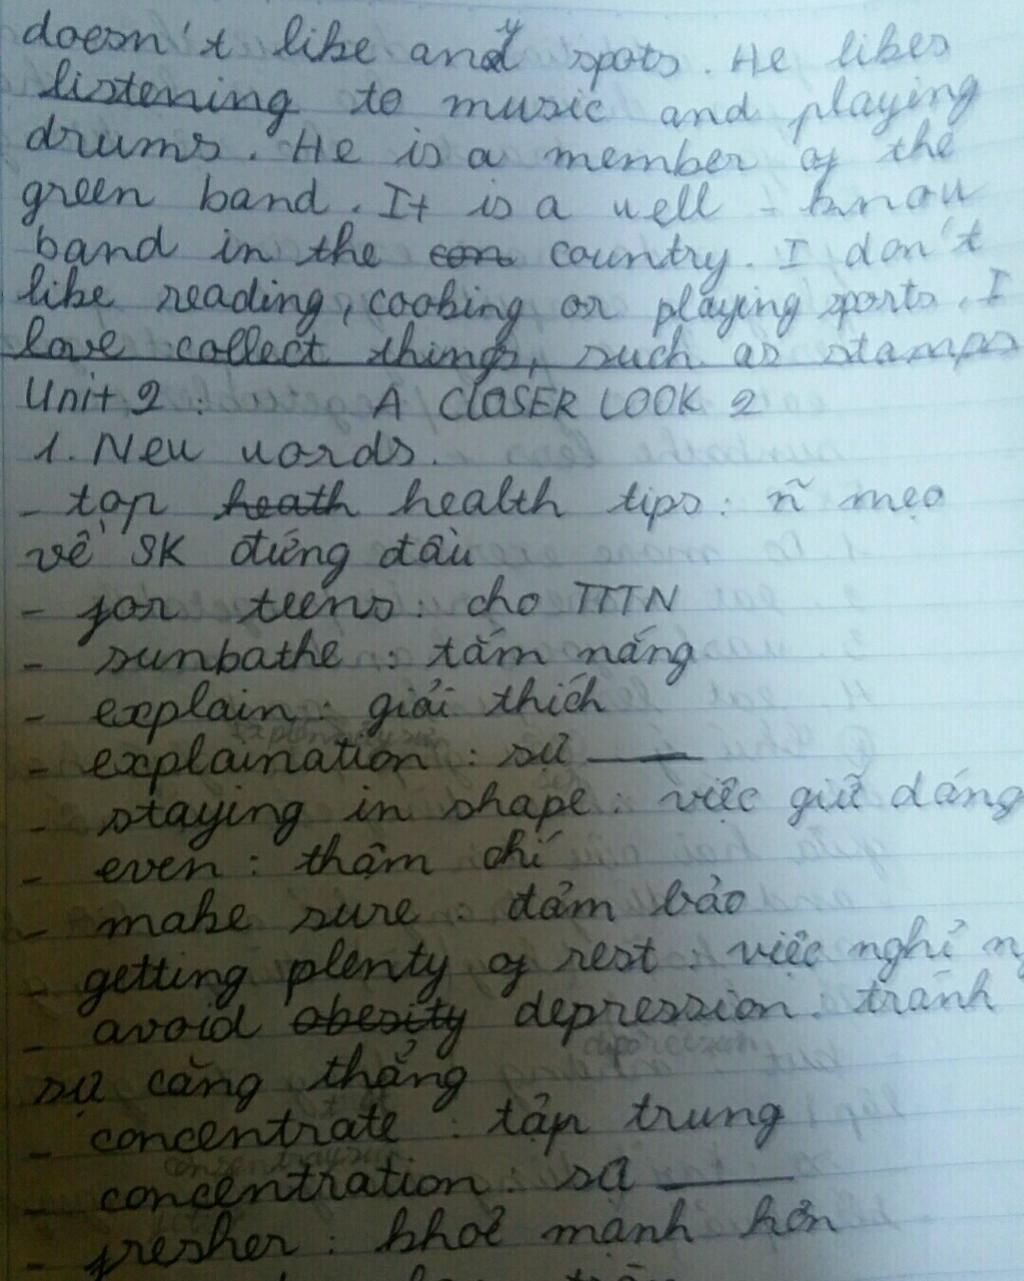 doesn't like any spots. He likes
listening to music and playing
drums. He is a member of the
green band. It is a well - know
band in the con country. I don't
like reading, cooking or playing sports. I
love collect things, such as stamps
Unit 2: A CLOSER LOOK 2
1. New words.
- top heath health tips: ñ mẹo
về SK đứng đầu
- for teens: cho TTTN
- sunbathe: tắm nắng
- explain: giải thích
- explaination: sự ——
- staying in shape: việc giữ dáng
- even: thậm chí
- make sure: đảm bảo
- getting plenty of rest: việc nghỉ
- avoid obesity depression: tránh
sự căng thẳng
- concentrate: tập trung
- concentration: sự ——
- fresher: khoẻ mạnh hơn